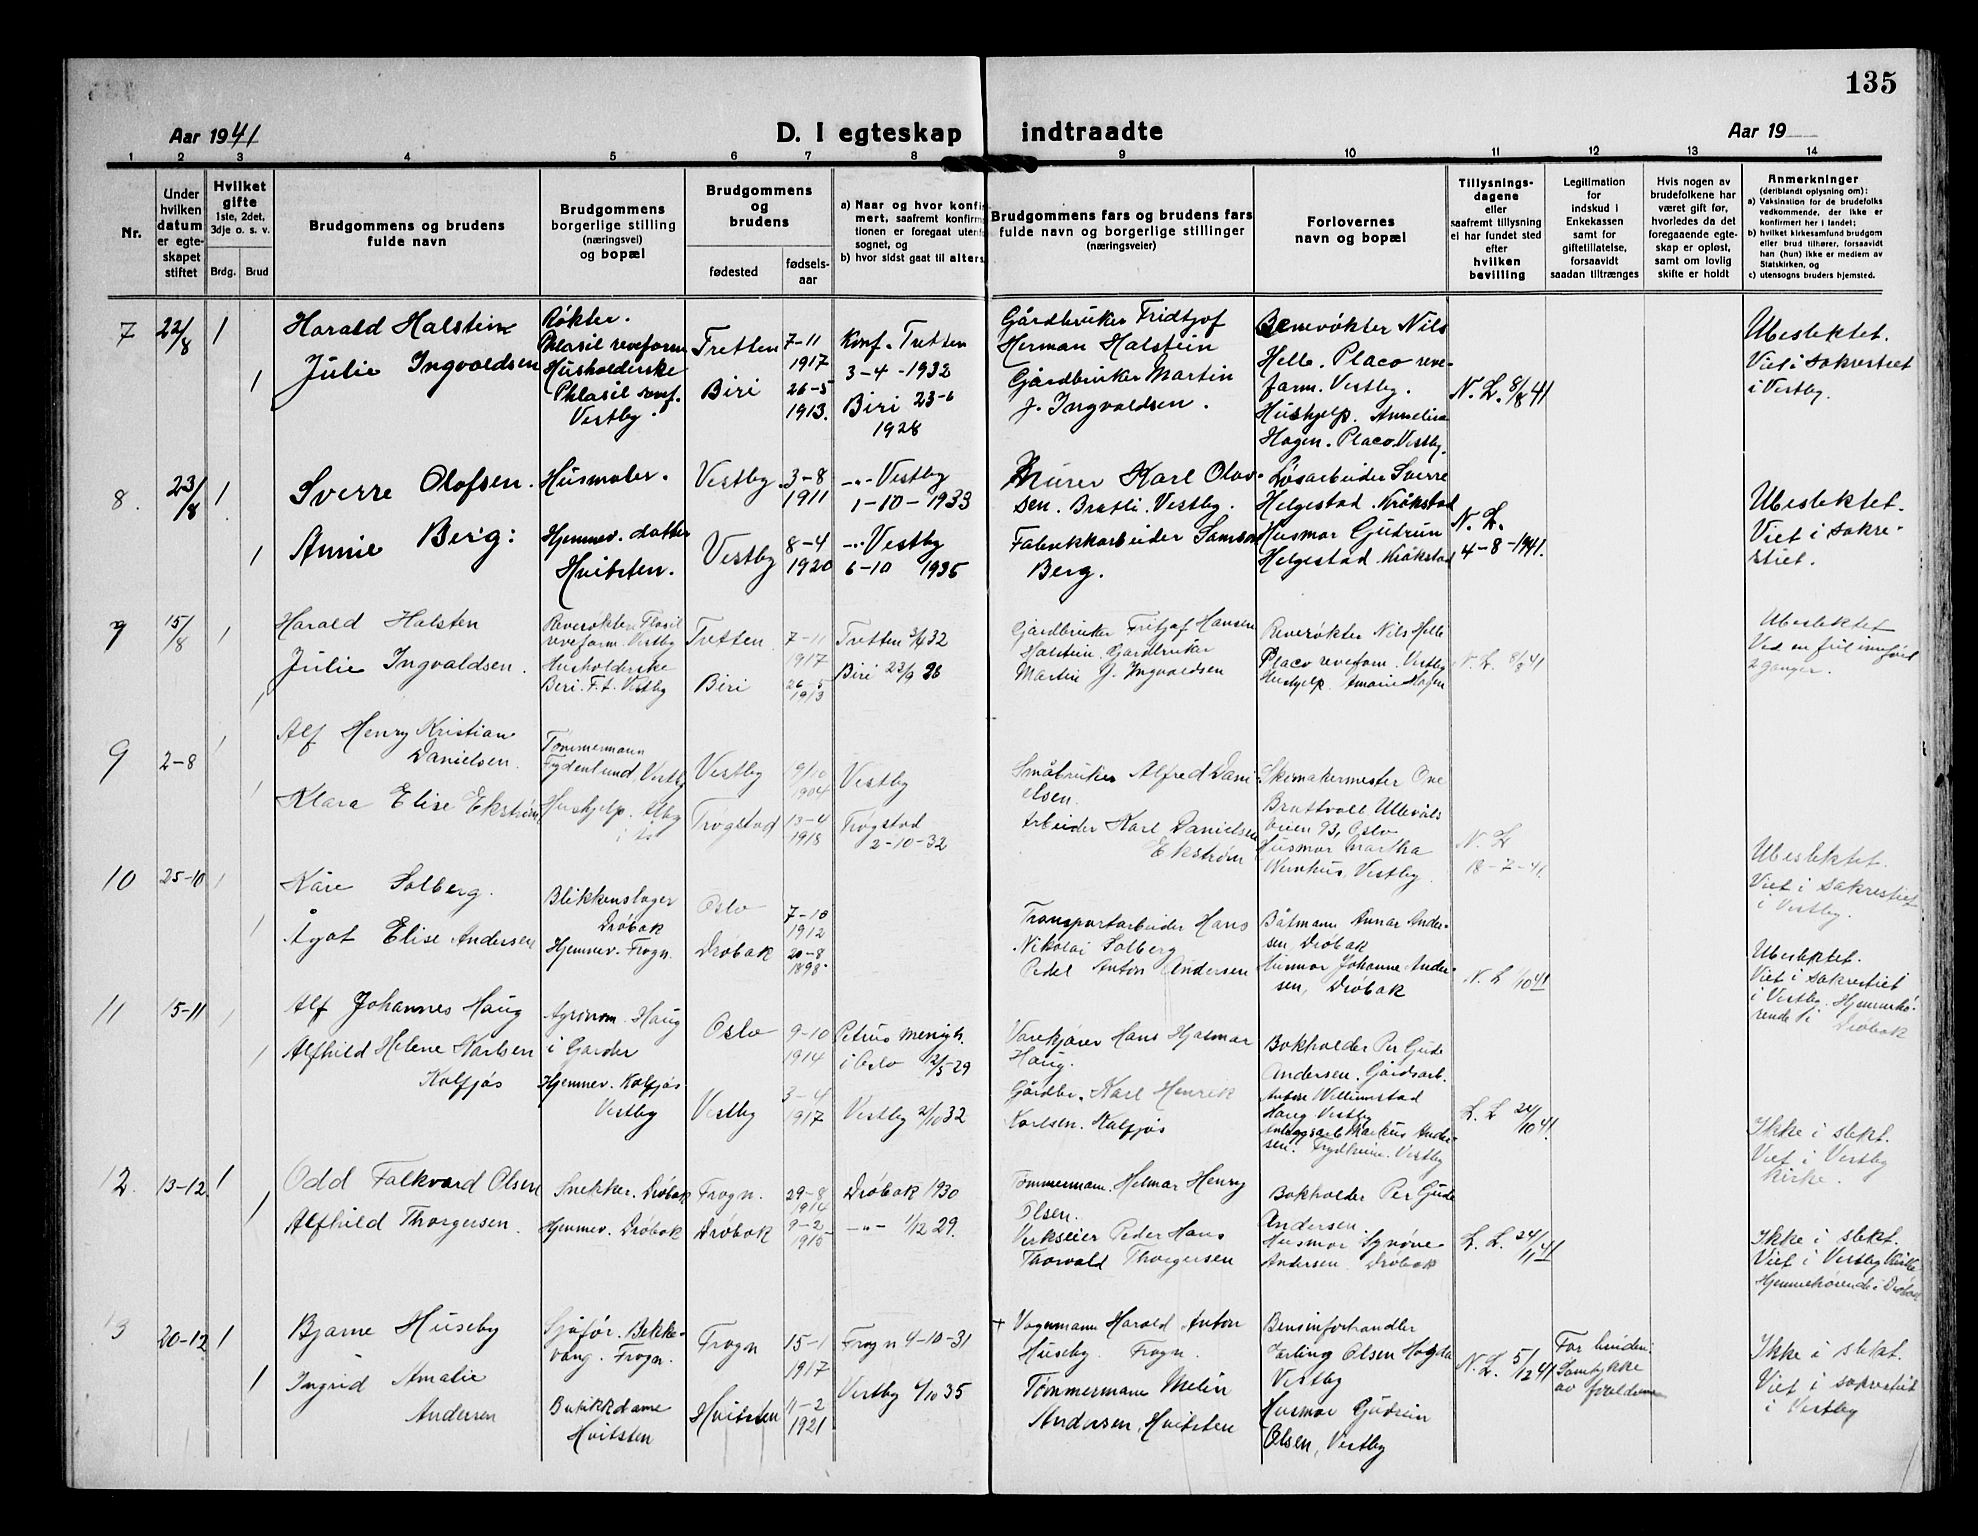 135
Aar 1941
D. I egteskap indtraadte
Aar 19
1 2 3 4 5 6 7 8 9 10 11 12 13 14
Nr.
Under
hvilken
datum
er egte-
skapet
stiftet
Hvilket
gifte
1ste, 2det,
3dje o. s. v.
Brdg. Brud
Brudgommens og brudens
fulde navn
Brudgommens
borgerlige stilling
(næringsvei)
og bopæl
Brudgommens
og
brudens
fødested
fødsels-
aar
a) Naar og hvor konfir
mert, saafremt konfirm
tionen er foregaat utenf
sognet, og
b) hvor sidst gaat til alters
Brudgommens fars og brudens fars
fulde navn og borgerlige stillinger
(næringsveier)
Forlovernes
navn og bopæl
Tillysnings-
dagene
eller
saafremt tillysning
ei har fundet sted
efter
hvilken
bevilling
Legitimation
for
indskud i
Enkekassen
samt for
giftetillatelse,
forsaavidt
saadan tiltrænges
Hvis nogen av
brudefolkene har
været gift før,
hvorledes da det
foregaaende egte-
skap er opløst,
samt om lovlig
skifte er holdt
Anmerkninger
(deriblandt oplysning om):
a) Vaksination for de brudefolks
vedkommende, der ikke er
konfirmert her i landet;
b) hvilket kirkesamfund brudgom
eller brud tilhører, forsaavidt
han (hun) ikke er medlem av
Statskirken, og
c) utensogns bruders hjemsted.
7
22/8
1
Harald Halstein
Røkter.
Phlasil revefarm
Tretten
7-11
1917
Konf. Tretten
3-4-1932
Gårdbruker Fridtjof
Herman Halstein
1
Julie Ingvaldsen
Husholderske
Phlasil revef.
Vestby.
Biri
26-5
1913.
Biri 23-6
1928
Gårdbruker Martin
J. Ingvaldsen.
Reverøkter Nils
Helle. Placo reve-
farm. Vestby.
Hushjelp. Annelisa
Hagen. Placo Vestby.
N. L. 8/8 41
Ubeslektet.
Viet i sakrestiet
i Vestby.
8.
23/8
1
Sverre Olofsen.
Husmaler.
Vestby.
3-8
1911
-"- Vestby
1-10-1933
Murer Karl Olav-
sen. Bratli. Vestby.
1
Annie Berg:
Hjemmev. datter
Hvitsten.
Vestby
8-4
1920
-"- Vestby
6-10 1935
Fabrikkarbeider Samson
Berg.
Løsarbeider Sverre
Helgestad. Kråkstad
Husmor Gudrun
Helgestad. Kråkstad
N. L.
4-8-1941.
Ubeslektet.
Viet i sakre-
stiet.
9
15/8
1
Harald Halsten
Reverøkter Flasil
revefarm Vestby
Tretten.
7-11
1917
Tretten 3/4 32
Gårdbruker Fritjof Hansen
Halstein. Gårdbruker
1
Julie Ingvaldsen.
Husholderske
Beri. F.t. Vestby
Biri
26-5
1913
Biri 23/9 26
Martin J. Ingvaldsen
Reverøkter Nils Helle
Placo revefarm. Vestby
Hushjelp. Hagen
N. L. 8/8 41
Ubeslektet
Ved en feil innført
2 ganger.
9
2-8
1
Alf Henry Kristian
Danielsen.
Tømmermann
Frydenlund, Vestby
Vestby
9/10
1904
Vestby
Småbruker Alfred Dani-
elsen.
1
Klara Elise Ekstrøm
Hushjelp.
Trøgstad
13-4
1918
Trøgstad
2-10-32
Arbeider Karl Danielsen
Ekstrøm
Skomakermester Ove
Brattvoll Ullevåls
veien 93, Oslo
Husmor Martha
Wernhus, Vestby.
N. L
18-7-41.
Ubeslektet.
Viet i sakrestiet
i Vestby.
10
25-10
1
Kåre Solberg.
Blikkenslager
Drøbak
Oslo
7-10
1912
Transportarbeider Hans
Nikolai Solberg
1
Ågot Elise Andersen
Hjemmev. Frogn.
Drøbak
20-8
1898.
Pedel Anton Andersen
Båtmann Annar Ander-
sen Drøbak
Husmor Johanne Ander-
sen, Drøbak
N. L /10 41
Ubeslektet.
Viet i sakrestiet
i Vestby. Hjemmehø-
rende i Drøbak
11
15-11
1
Alf Johannes Haug
Agronom. Haug
i Garder
Oslo
9-10
1914
Petrus menigh.
i Oslo 2/5-29
Varekjører Hans Hjalmar
Haug.
1
Alfhild Helene Karlsen
Kolfjøs
Hjemmev. Kolfjøs
Vestby
Vestby
3-4
1917
Vestby 2/10 32
Gårdbr. Karl Henrik
Karlsen. Kolfjøs
Bokholder Per Gude
Andersen. Gårdsarb.
Haug Vestby
Markus Ander-
sen. Frydheim. Vestby
L. L 24/10 41.
Ikke i slekt.
Viet i Vestby
kirke.
12
13-12
1
Odd Falkvard Olsen
Snekker. Drøbak
Frogn.
29-8
1914
Drøbak 1930
Tømmermann. Helmar Henry
Olsen.
1
Alfhild Thorgersen.
Hjemmev. Drøbak
Drøbak
9-2
1915
-"- 1/12 29.
Verkseier Peder Hans
Thorvald Thorgersen
Bokholder Per Gude
Andersen.
Husmor Synøve
Andersen Drøbak
L. L. 24/11 41
Ikke i slekt.
Viet i Vestby Kirke
Hjemmehørende i Drøbak
13
20-12
1
Bjarne Huseby
Sjåfør. Bekke-
vang. Frogn.
Frogn
15-1
1917
Frogn 4-10-31
+ Vognmann Harald Anton
Huseby. Frogn.
1
Ingrid Amalie
Andersen
Butikkdame
Hvitsten
Hvitsten
11-2
1921
Vestby 6/10 35
Tømmermann Melin
Andersen, Hvitsten
Bensinforhandler
Olsen
Vestby
Husmor Gudrun
Olsen, Vestby
N. L. 5/12 41
For bruden:
Samtykke
av foreldrene
Ikke i slekt.
Viet i sakrestiet
i Vestby